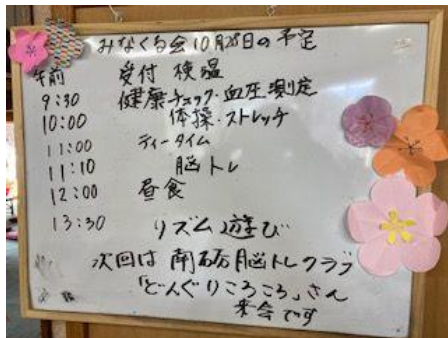 みなくる会10月28日の予定
午前 受付 検温
9:30 健康チェック・血圧測定
10:00 体操・ストレッチ
11:00 ティータイム
11:10 脳トレ
12:00 昼食
13:30 リズム遊び
次回は 南砺脳トレクラブ
「どんぐりころころ」さん
来会です